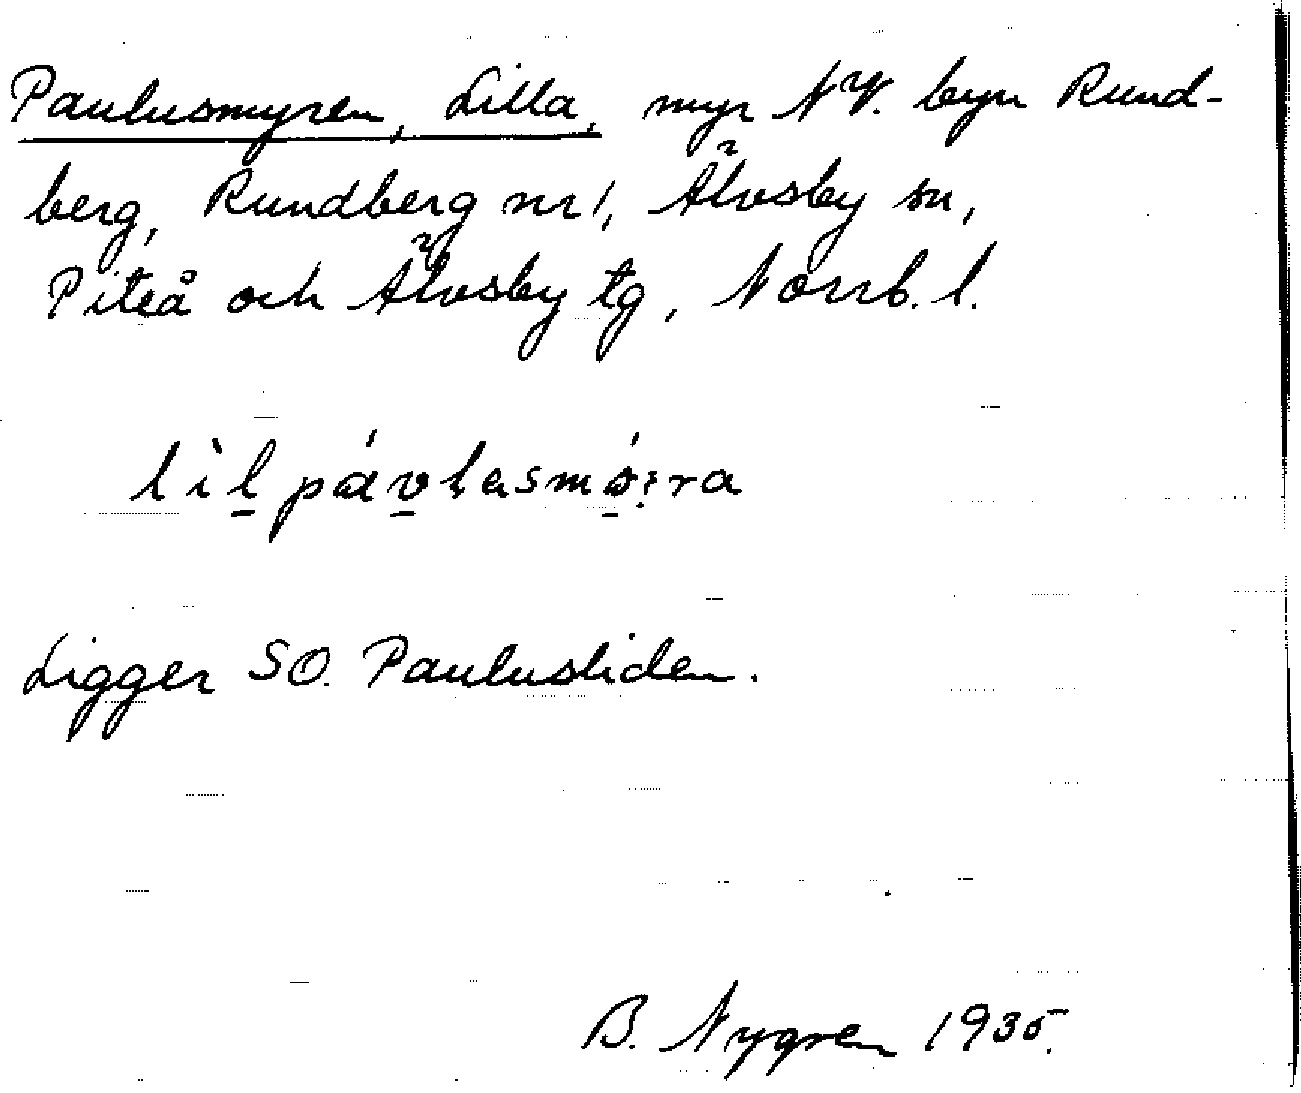 Paulusmyren, Lilla, myr NV. byn Rund-
berg, Rundberg nr 1, Älvsby sn,
Piteå och Älvsby tg, Norrb. l.
Ligger SO. Paulusliden.
B. Nygren 1935.